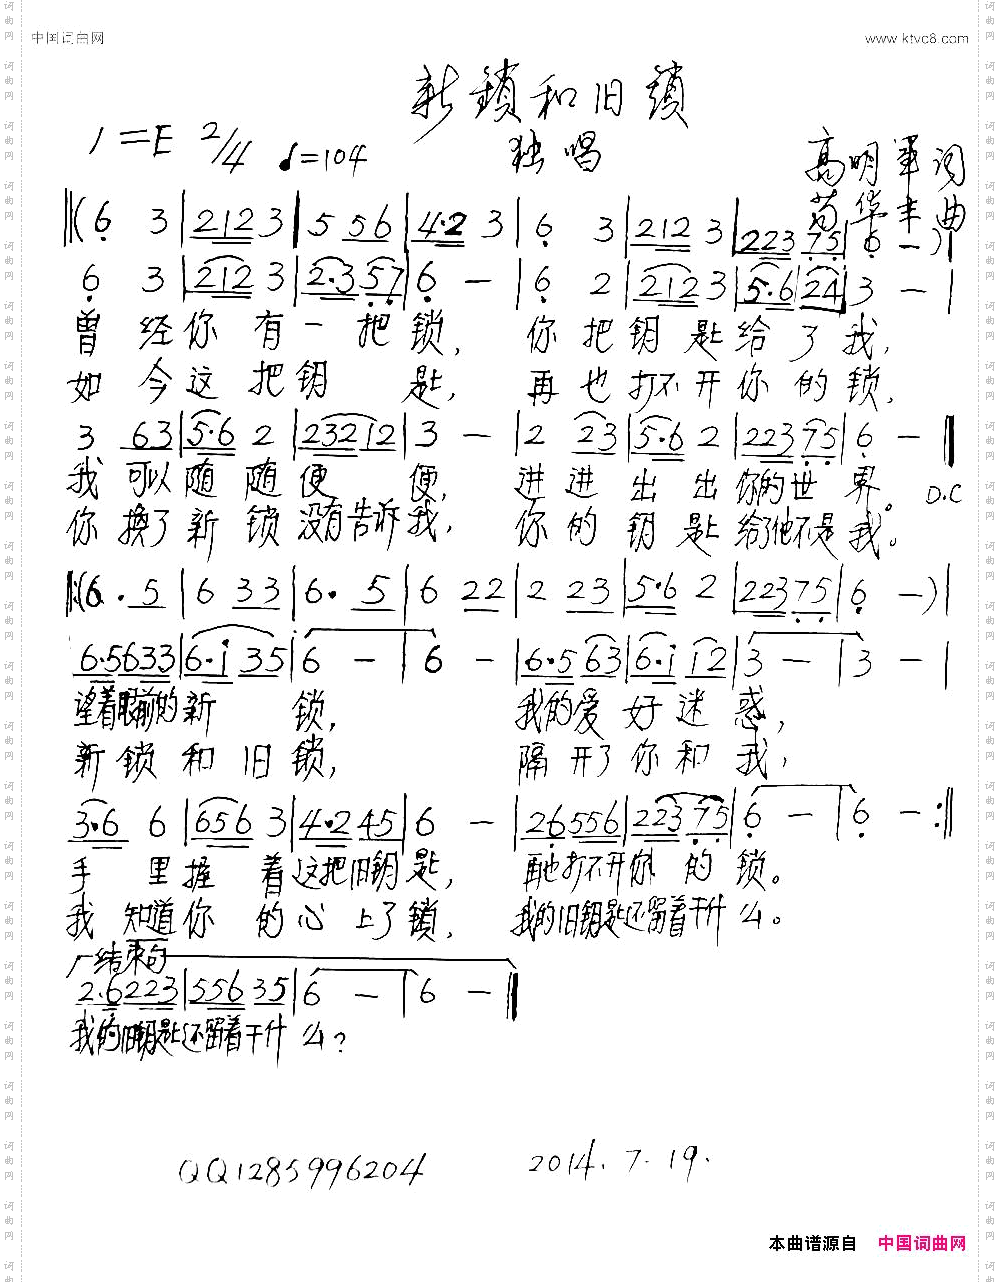 中国词曲网 www.ktvc8.com
新鎖和旧鎖
1=E 2/4 ♩=104 独唱 高明军词
苟华丰曲
‖(6 3|2123|5 56|4·2 3|6 3|212 3|22375|6 -)|
6 3|212 3|2·357|6 -|6 2|212 3|5·624|3 -|
曾经你有一把锁, 你把钥匙给了我,
如今这把钥匙, 再也打不开你的锁,
3 63|5·6 2|23212|3 -|2 23|5·6 2|22375|6 -‖
我可以随随便便, 进进出出你的世界。 D.C
你换了新锁没有告诉我, 你的钥匙给了他不是我。
‖:(6· 5|6 33|6· 5|6 22|2 23|5·6 2|22375|6 -)|
6·5633|6·i35|6 -|6 -|6·563|6·i12|3 -|3 -|
望着眼前的新锁, 我的爱好迷惑,
新锁和旧锁, 隔开了你和我,
3·6 6|656 3|4·245|6 -|26556|22375|6 -|6 -:‖
手里握着这把旧钥匙, 再也打不开你的锁。
我知道你的心上了锁, 我的旧钥匙还留着干什么。
结束句
2·6223|55635|6 -|6 -‖
我的旧钥匙还留着干什么?
QQ1285996204 2014.7.19.
本曲谱源自 中国词曲网